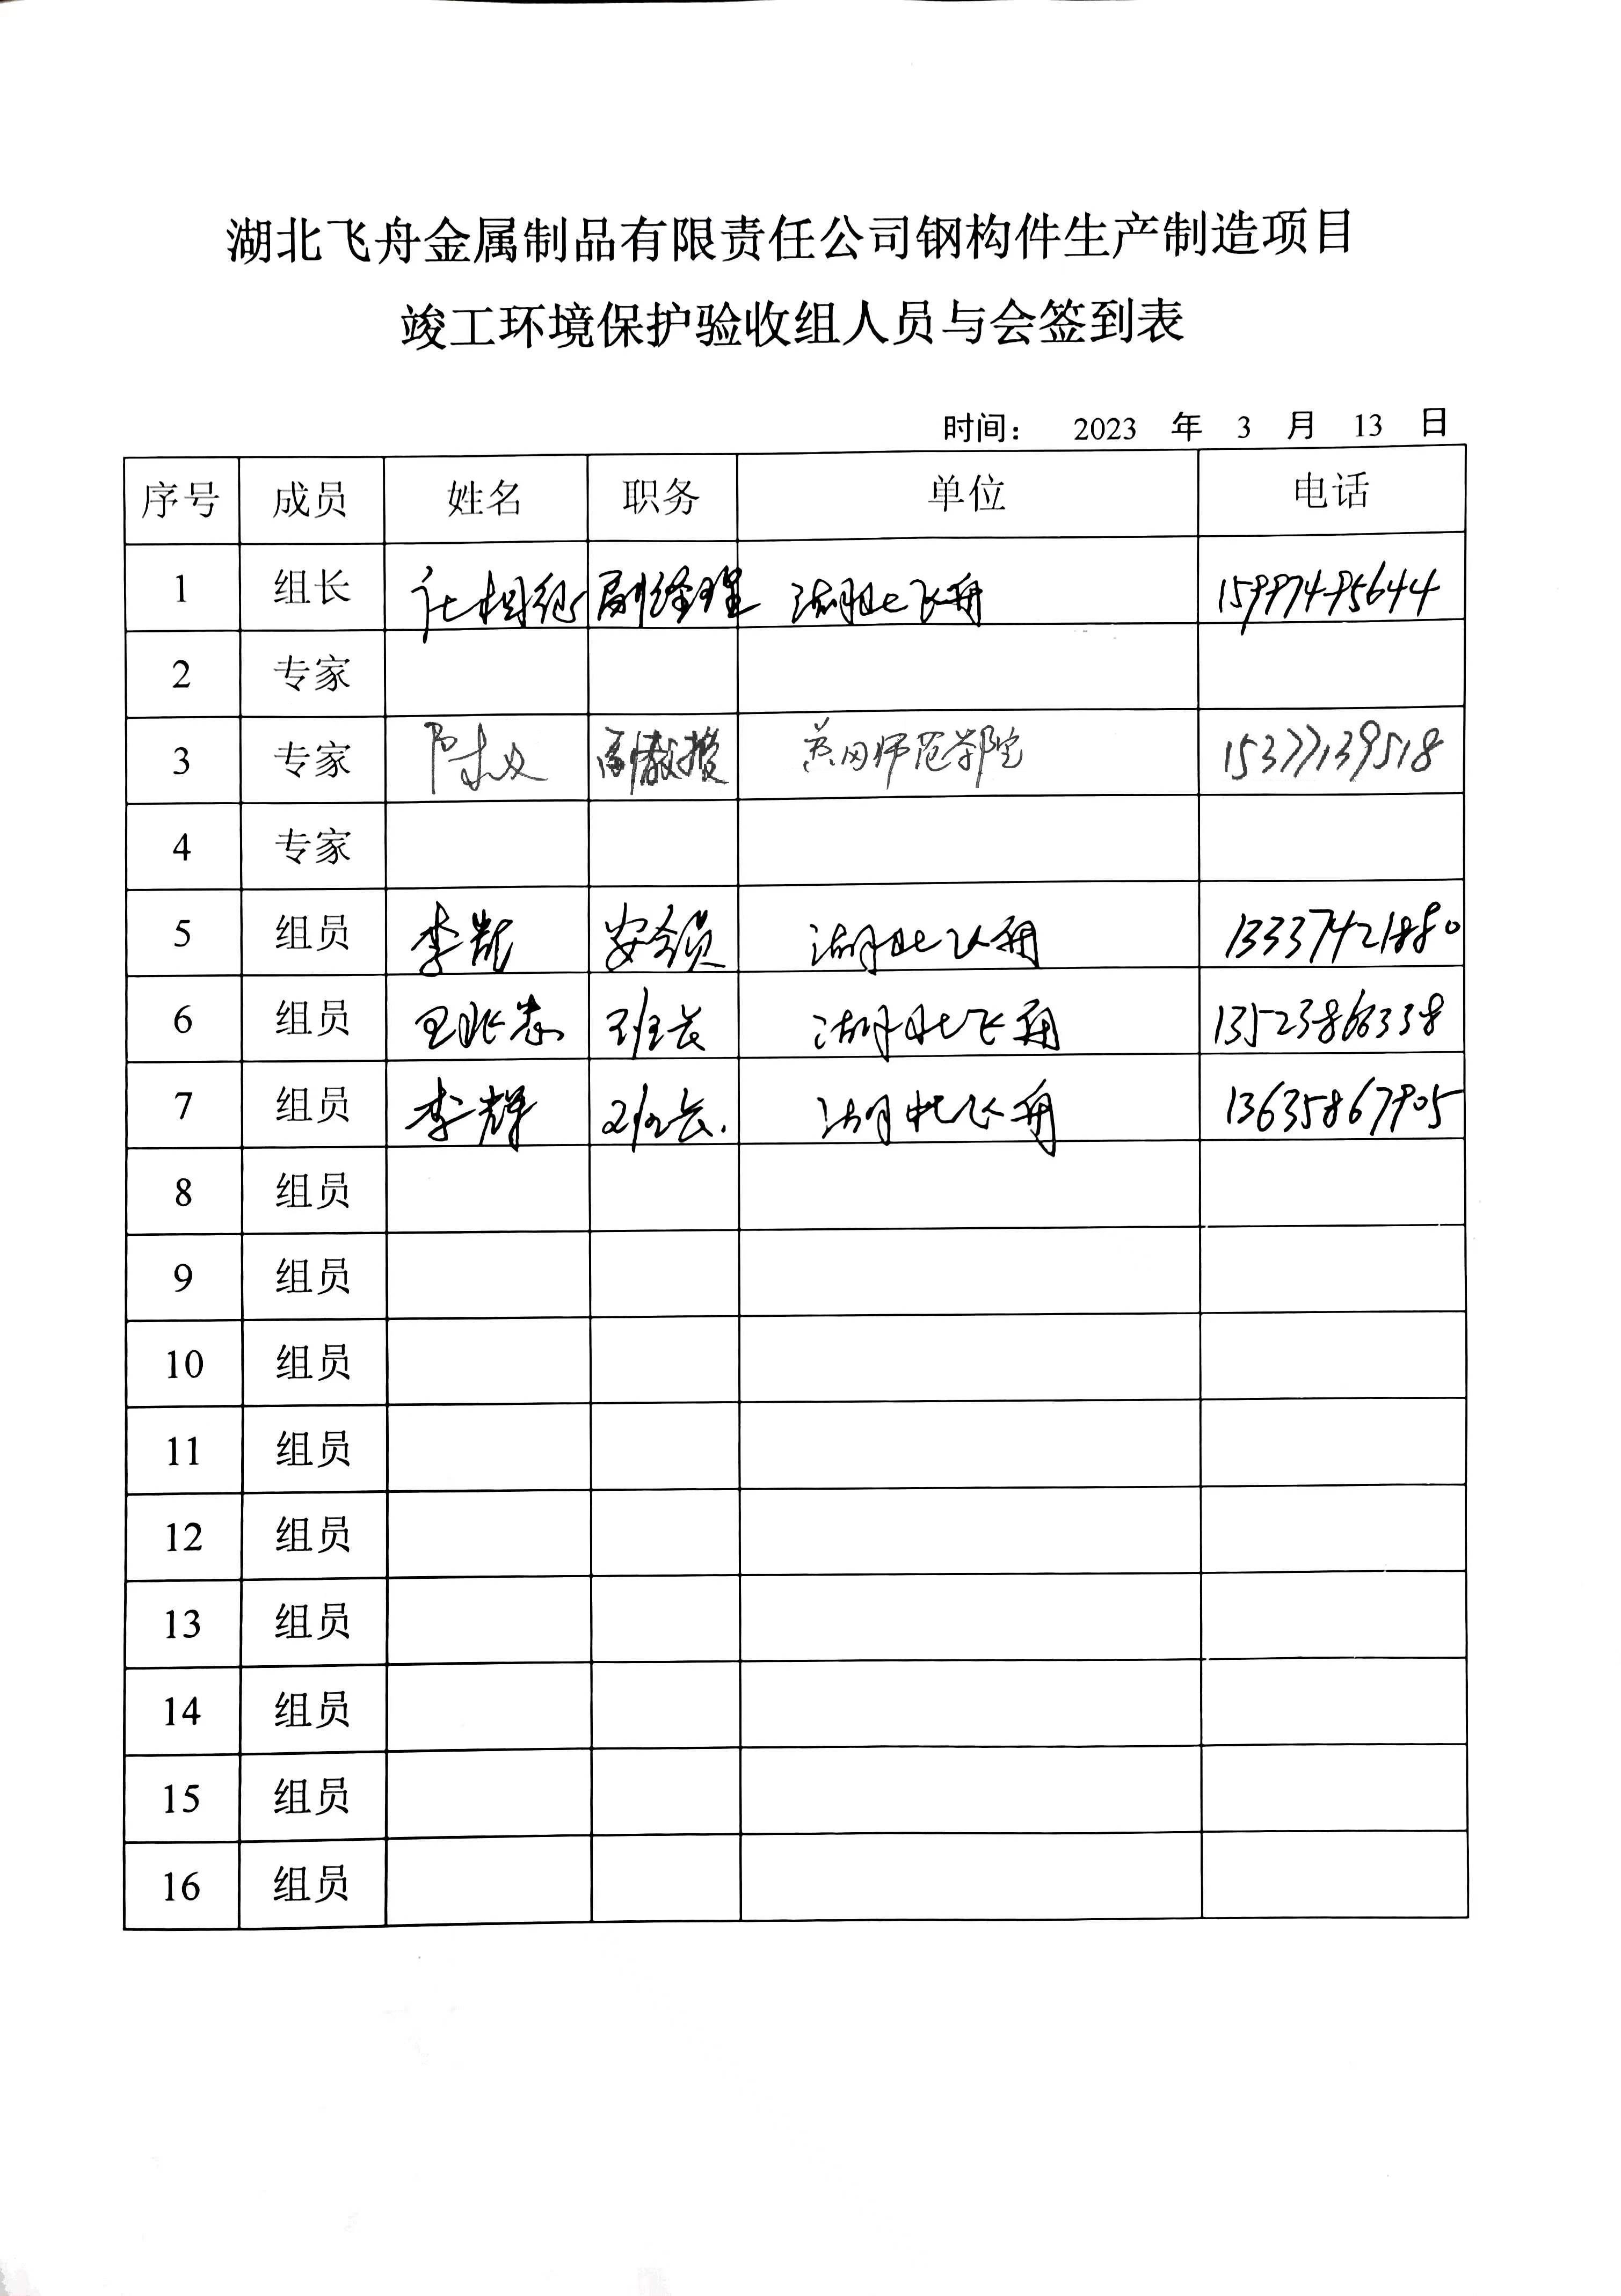 湖北飞舟金属制品有限责任公司钢构件生产制造项目
竣工环境保护验收组人员与会签到表
时间： 2023 年 3 月 13 日
序号 成员 姓名 职务 单位 电话
1 组长 副经理 湖北飞舟 15997495644
2 专家
3 专家 副教授 黄冈师范学院 15377139518
4 专家
5 组员 李凯 安全员 湖北飞舟 13337421880
6 组员 王兆忠 班长 湖北飞舟 13523866338
7 组员 李辉 班长 湖北飞舟 13635867905
8 组员
9 组员
10 组员
11 组员
12 组员
13 组员
14 组员
15 组员
16 组员